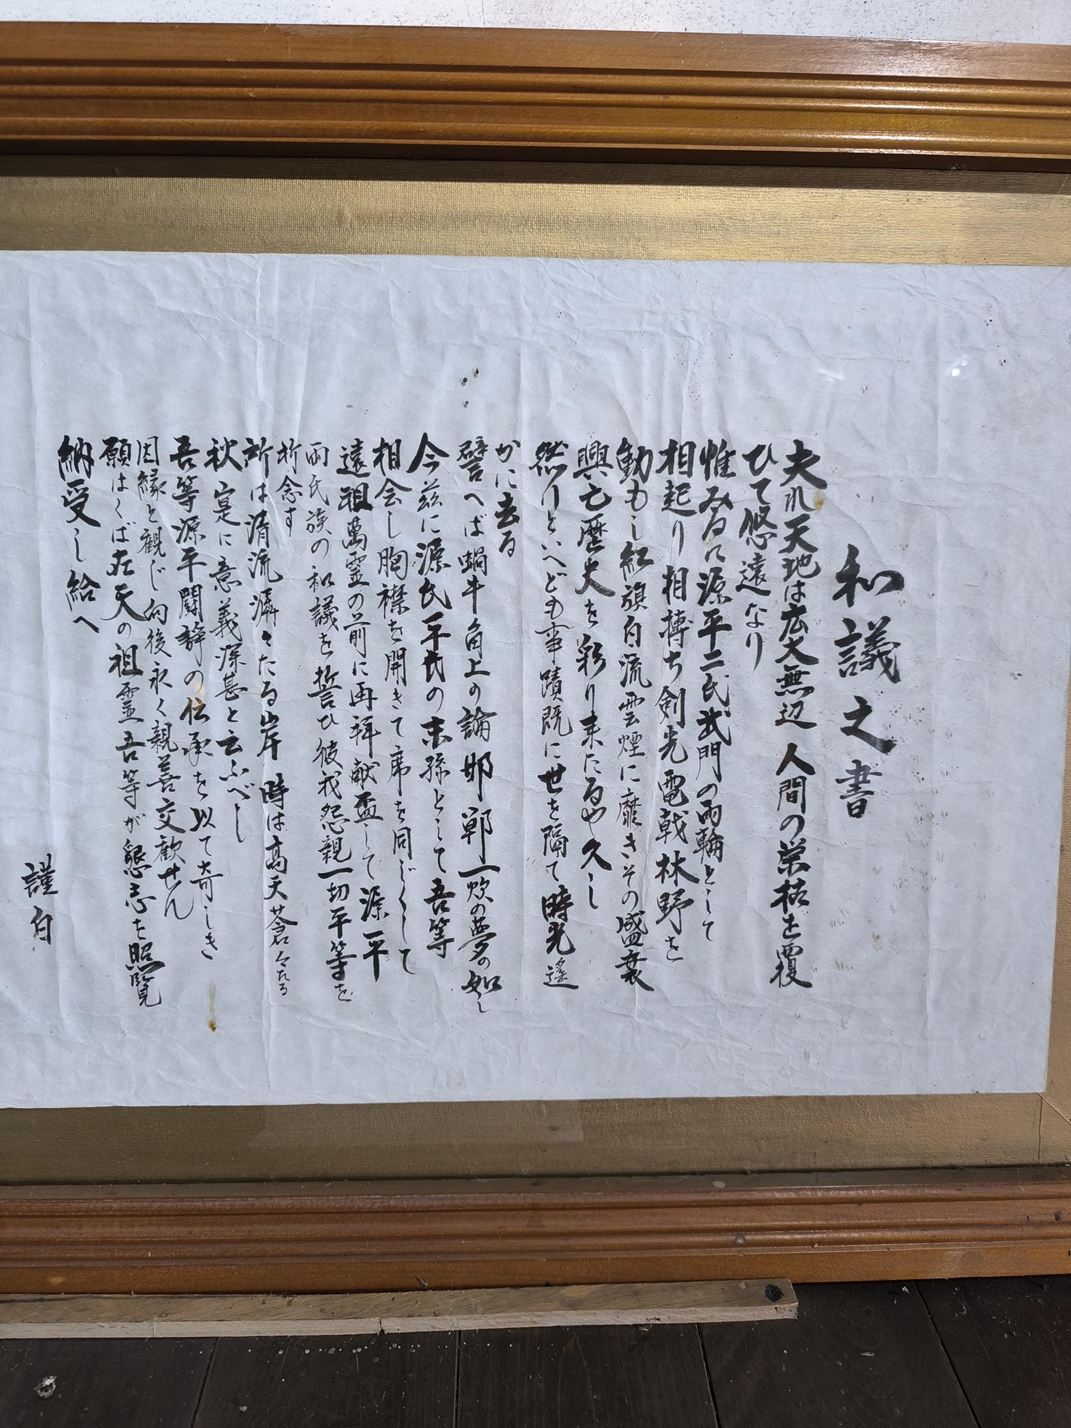 和議之書
夫れ天地は広大無辺 人間の栄枯を覆
ひて悠遠なり
惟みるに源平二氏武門の両輪として
相起り相搏ち剣光電戟林野を
動もし紅旗白流雲煙に靡きその盛衰
興亡歴史を彩り来たるや久し
然りといへども事蹟既に世を隔て時光遙
かに去る
譬へば蝸牛角上の論邯鄲一炊の夢の如し
今茲に源氏平氏の末孫として吾等
相会し胸襟を開きて席を同じくして
遠祖萬霊の前に再拝献盃して源平
両氏族の和議を誓ひ彼我怨親一切平等を
祈念す
所は清流潾々たる岸 時は高天蒼々たる
秋 寔に意義深甚と云ふべし
吾等源平闘諍の伝承を以て奇しき
因縁と観じ向後永く親善交歓せん
願はくば在天の祖霊吾等が懇志を照覧
納受し給へ
謹白